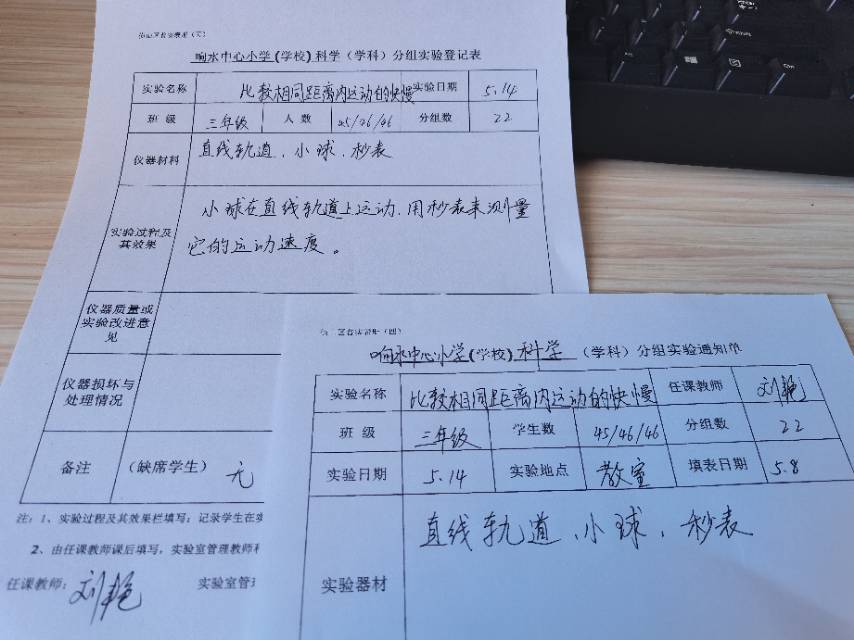 响水中心小学(学校)科学(学科)分组实验登记表
实验名称 比较相同距离内运动的快慢 实验日期 5.14
班 级 三年级 人 数 45/46/46 分组数 22
仪器材料 直线轨道、小球、秒表
实验过程及其效果 小球在直线轨道上运动,用秒表来测量
它的运动速度。
仪器质量或
实验改进意
见
仪器损坏与
处理情况
备注 (缺席学生) 无
注:1、实验过程及其效果栏填写:记录学生在实
2、由任课教师课后填写,实验室管理教师
任课教师:刘艳 实验室管
响水中心小学(学校)科学(学科)分组实验通知单
实验名称 比较相同距离内运动的快慢 任课教师 刘艳
班 级 三年级 学生数 45/46/46 分组数 22
实验日期 5.14 实验地点 教室 填表日期 5.8
实验器材 直线轨道、小球、秒表